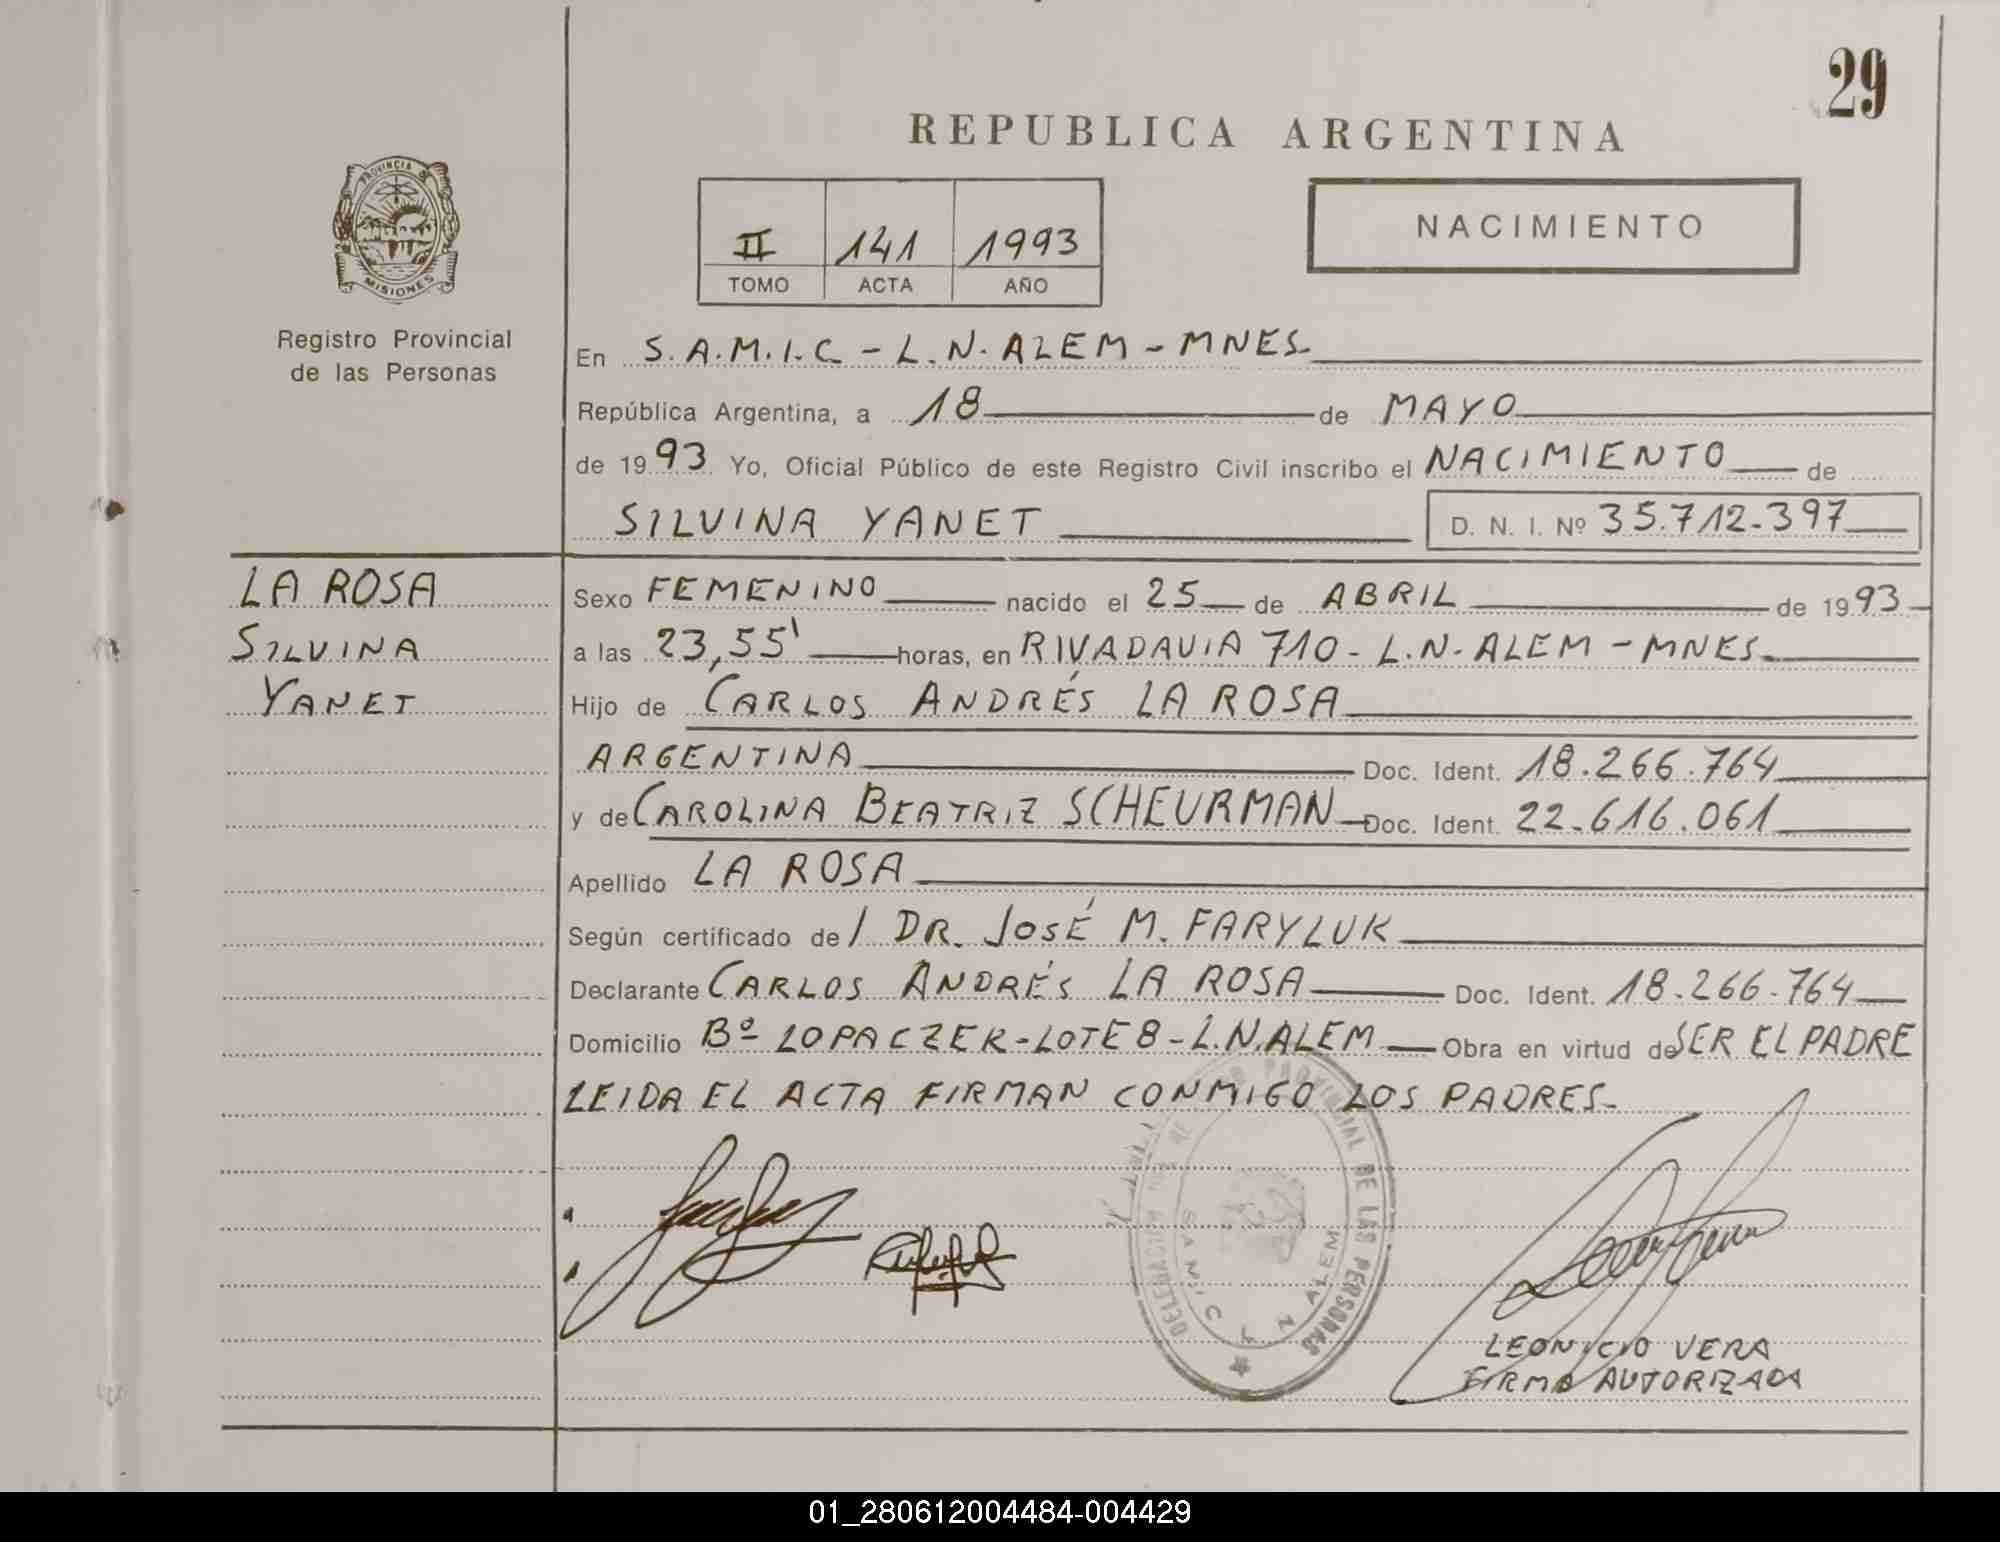 29
REPUBLICA ARGENTINA
PROVINCIA DE
MISIONES
Registro Provincial
de las Personas
II 141 1993
TOMO ACTA AÑO
NACIMIENTO
En S.A.M.I.C - L.N. ALEM - MNES
República Argentina, a 18 de MAYO
de 1993 Yo, Oficial Público de este Registro Civil inscribo el NACIMIENTO de
SILVINA YANET D. N. I. Nº 35.712.397
LA ROSA
SILVINA
YANET
Sexo FEMENINO nacido el 25 de ABRIL de 1993
a las 23,55' horas, en RIVADAVIA 710 - L.N. ALEM - MNES.
Hijo de CARLOS ANDRÉS LA ROSA
ARGENTINA Doc. Ident. 18.266.764
y de CAROLINA BEATRIZ SCHEURMAN Doc. Ident. 22.616.061
Apellido LA ROSA
Según certificado de / DR. JOSÉ M. FARYLUK
Declarante CARLOS ANDRÉS LA ROSA Doc. Ident. 18.266.764
Domicilio Bº LOPACZEK - LOTE 8 - L.N. ALEM Obra en virtud de SER EL PADRE
LEIDA EL ACTA FIRMAN CONMIGO LOS PADRES-
PROVINCIAL DE LAS PERSONAS
DELEGACION
SAMIC L N ALEM
LEONICIO VERA
FIRMA AUTORIZADA
01_280612004484-004429